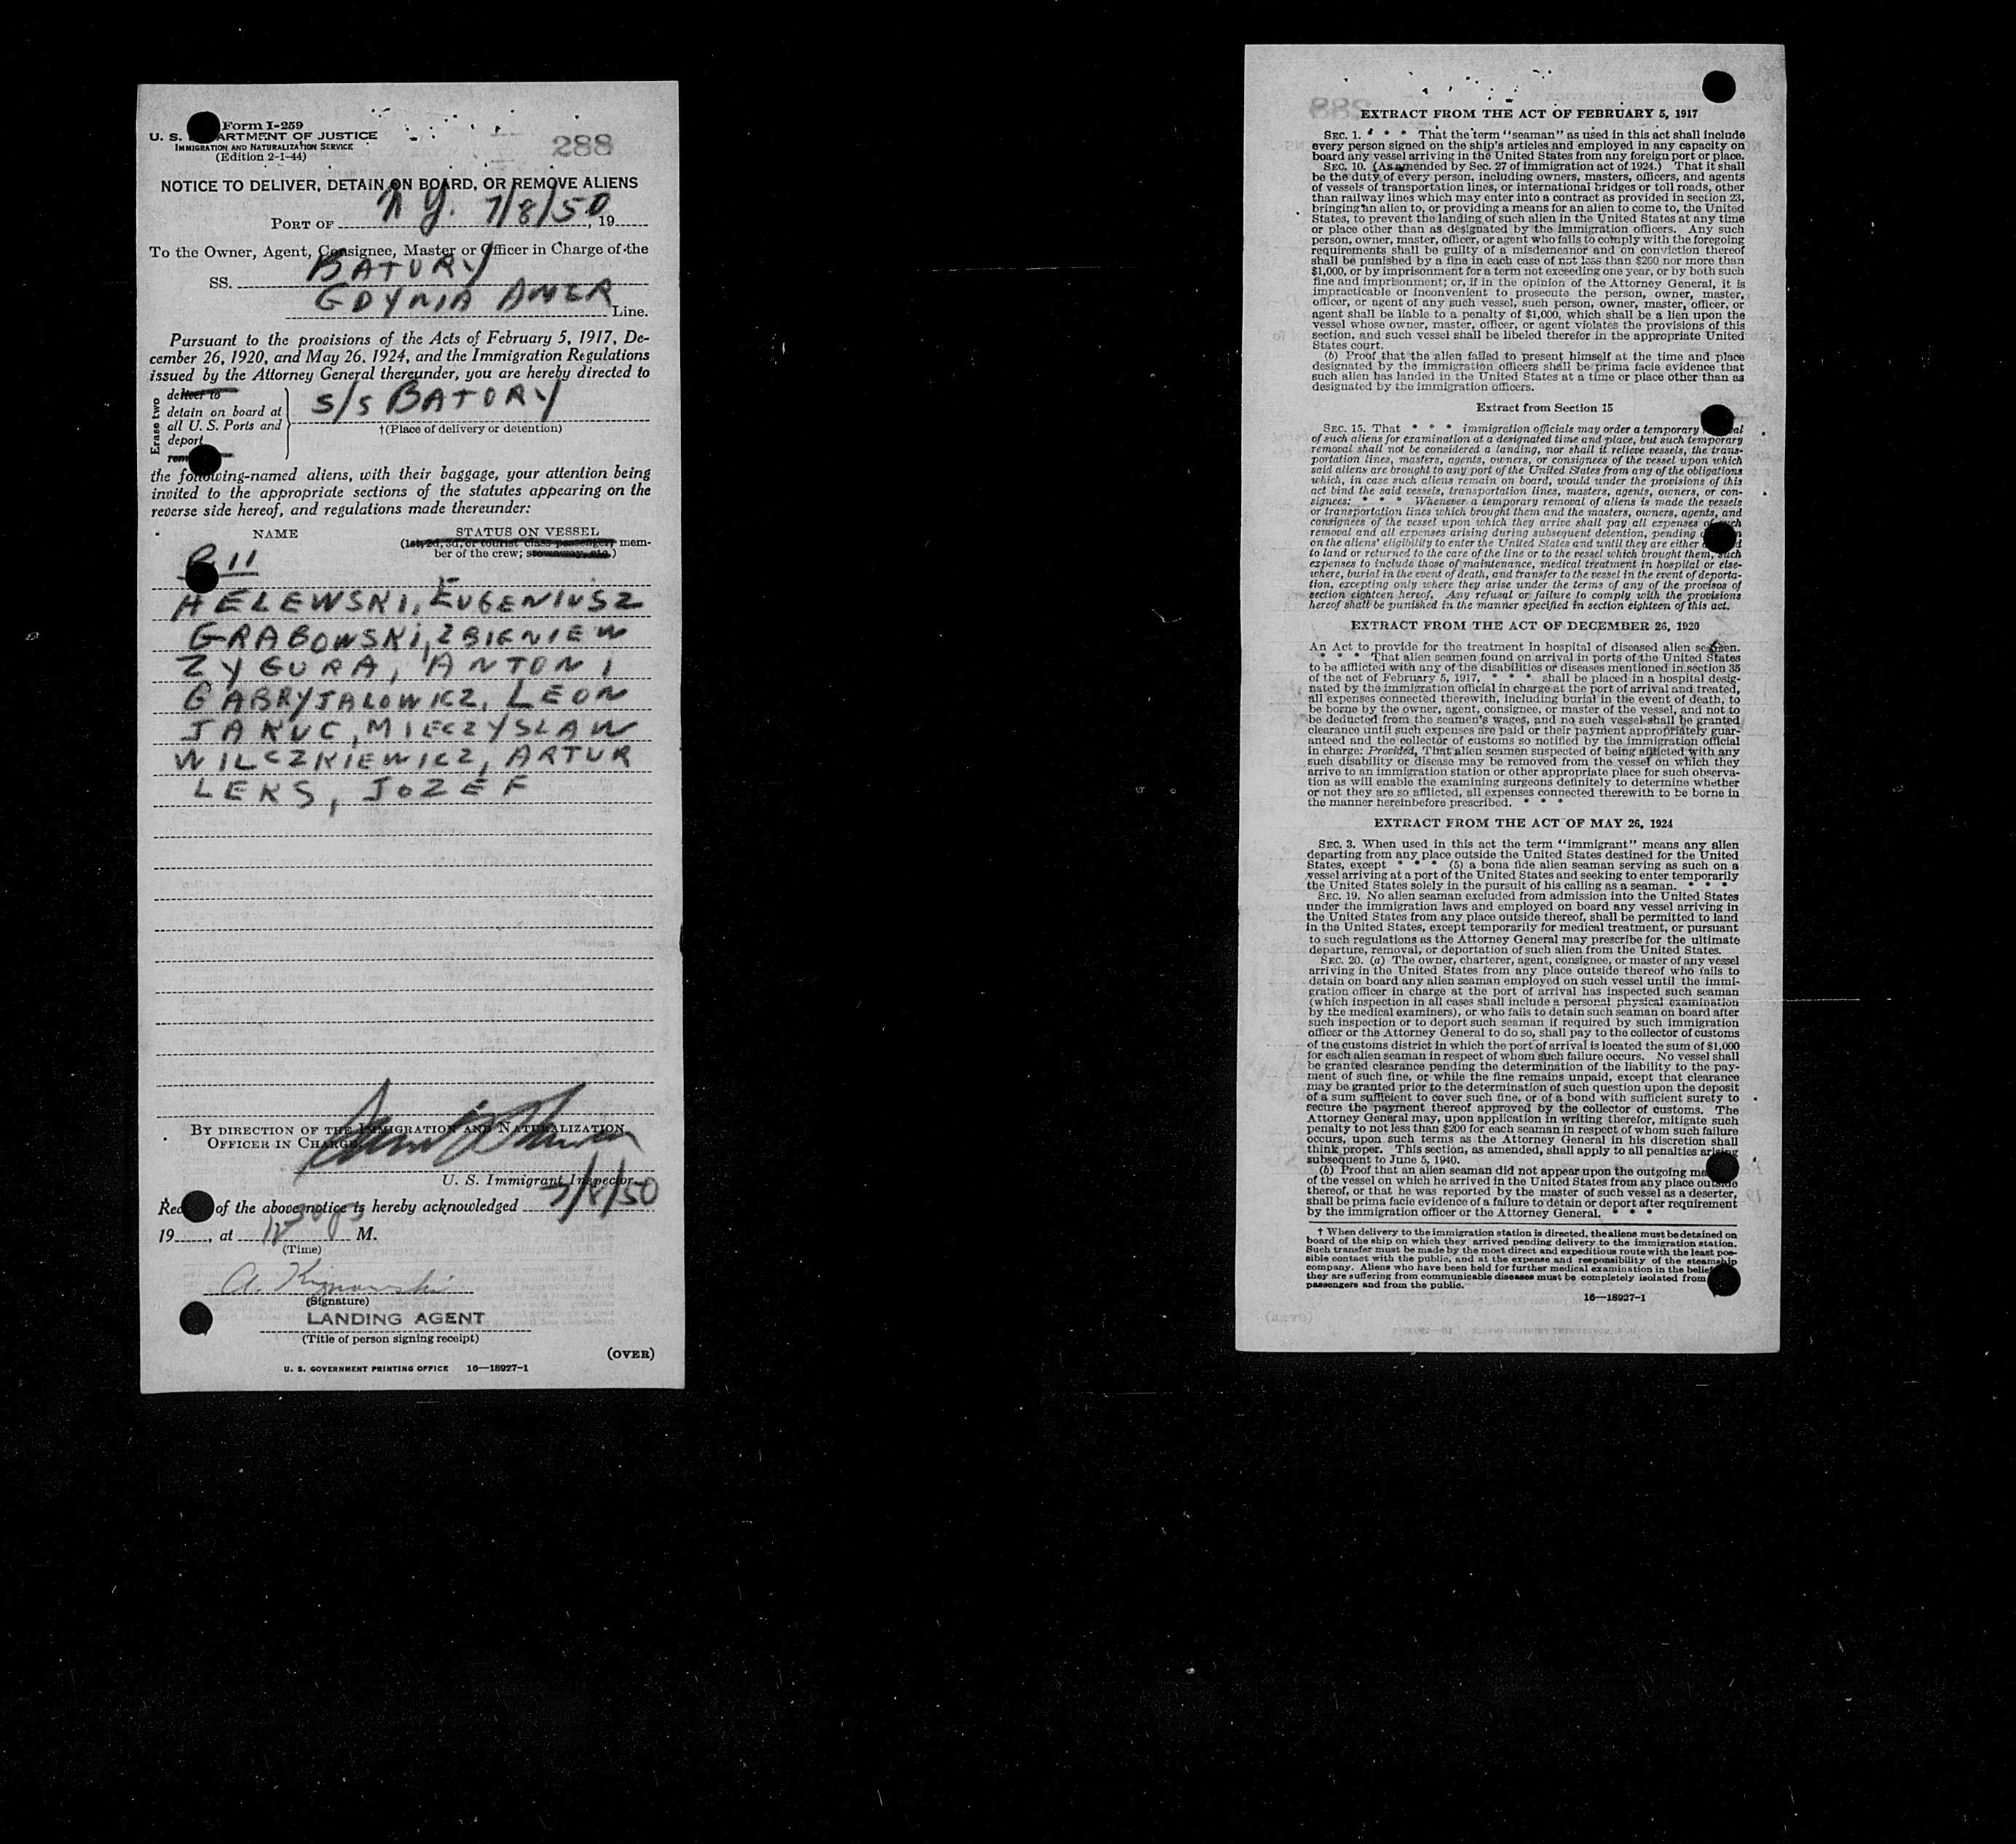 Form I-259
U. S. DEPARTMENT OF JUSTICE
IMMIGRATION AND NATURALIZATION SERVICE
(Edition 2-1-44)
288
NOTICE TO DELIVER, DETAIN ON BOARD, OR REMOVE ALIENS
PORT OF N Y. 7/8/50, 19
To the Owner, Agent, Consignee, Master or Officer in Charge of the
SS. BATORY
GDYNIA AMER Line.
Pursuant to the provisions of the Acts of February 5, 1917, De-
cember 26, 1920, and May 26, 1924, and the Immigration Regulations
issued by the Attorney General thereunder, you are hereby directed to
Erase two
deliver to
detain on board at
all U. S. Ports and
deport
S/S BATORY
†(Place of delivery or detention)
the following-named aliens, with their baggage, your attention being
invited to the appropriate sections of the statutes appearing on the
reverse side hereof, and regulations made thereunder:
NAME STATUS ON VESSEL
(1st, 2d, 3d, or tourist class passenger; mem-
ber of the crew; stowaway, etc.)
R 11
HELEWSKI, EUGENIUSZ
GRABOWSKI, ZBIGNIEW
ZYGURA, ANTONI
GABRYJALOWICZ, LEON
JAKUC, MIECZYSLAW
WILCZKIEWICZ, ARTUR
LEKS, JOZEF
BY DIRECTION OF THE IMMIGRATION AND NATURALIZATION
OFFICER IN CHARGE.
U. S. Immigrant Inspector.
of the above notice is hereby acknowledged 7/8/50
19, at M.
(Time)
A.
(Signature)
LANDING AGENT
(Title of person signing receipt)
(OVER)
U. S. GOVERNMENT PRINTING OFFICE 16—18927-1
EXTRACT FROM THE ACT OF FEBRUARY 5, 1917
SEC. 1. * * * That the term "seaman" as used in this act shall include
every person signed on the ship's articles and employed in any capacity on
board any vessel arriving in the United States from any foreign port or place.
SEC. 10. (As amended by Sec. 27 of immigration act of 1924.) That it shall
be the duty of every person, including owners, masters, officers, and agents
of vessels of transportation lines, or international bridges or toll roads, other
than railway lines which may enter into a contract as provided in section 23,
bringing an alien to, or providing a means for an alien to come to, the United
States, to prevent the landing of such alien in the United States at any time
or place other than as designated by the immigration officers. Any such
person, owner, master, officer, or agent who fails to comply with the foregoing
requirements shall be guilty of a misdemeanor and on conviction thereof
shall be punished by a fine in each case of not less than $200 nor more than
$1,000, or by imprisonment for a term not exceeding one year, or by both such
fine and imprisonment; or, if in the opinion of the Attorney General, it is
impracticable or inconvenient to prosecute the person, owner, master,
officer, or agent of any such vessel, such person, owner, master, officer, or
agent shall be liable to a penalty of $1,000, which shall be a lien upon the
vessel whose owner, master, officer, or agent violates the provisions of this
section, and such vessel shall be libeled therefor in the appropriate United
States court.
(b) Proof that the alien failed to present himself at the time and place
designated by the immigration officers shall be prima facie evidence that
such alien has landed in the United States at a time or place other than as
designated by the immigration officers.
Extract from Section 15
SEC. 15. That * * * immigration officials may order a temporary removal
of such aliens for examination at a designated time and place, but such temporary
removal shall not be considered a landing, nor shall it relieve vessels, the trans-
portation lines, masters, agents, owners, or consignees of the vessel upon which
said aliens are brought to any port of the United States from any of the obligations
which, in case such aliens remain on board, would under the provisions of this
act bind the said vessels, transportation lines, masters, agents, owners, or con-
signees: * * * Whenever a temporary removal of aliens is made the vessels
or transportation lines which brought them and the masters, owners, agents, and
consignees of the vessel upon which they arrive shall pay all expenses of such
removal and all expenses arising during subsequent detention, pending decision
on the aliens' eligibility to enter the United States and until they are either allowed
to land or returned to the care of the line or to the vessel which brought them, such
expenses to include those of maintenance, medical treatment in hospital or else-
where, burial in the event of death, and transfer to the vessel in the event of deporta-
tion, excepting only where they arise under the terms of any of the provisos of
section eighteen hereof. Any refusal or failure to comply with the provisions
hereof shall be punished in the manner specified in section eighteen of this act.
EXTRACT FROM THE ACT OF DECEMBER 26, 1920
An Act to provide for the treatment in hospital of diseased alien seamen.
* * * That alien seamen found on arrival in ports of the United States
to be afflicted with any of the disabilities or diseases mentioned in section 35
of the act of February 5, 1917, * * * shall be placed in a hospital desig-
nated by the immigration official in charge at the port of arrival and treated,
all expenses connected therewith, including burial in the event of death, to
be borne by the owner, agent, consignee, or master of the vessel, and not to
be deducted from the seamen's wages, and no such vessel shall be granted
clearance until such expenses are paid or their payment appropriately guar-
anteed and the collector of customs so notified by the immigration official
in charge: Provided, That alien seamen suspected of being afflicted with any
such disability or disease may be removed from the vessel on which they
arrive to an immigration station or other appropriate place for such observa-
tion as will enable the examining surgeons definitely to determine whether
or not they are so afflicted, all expenses connected therewith to be borne in
the manner hereinbefore prescribed. * * *
EXTRACT FROM THE ACT OF MAY 26, 1924
SEC. 3. When used in this act the term "immigrant" means any alien
departing from any place outside the United States destined for the United
States, except * * * (5) a bona fide alien seaman serving as such on a
vessel arriving at a port of the United States and seeking to enter temporarily
the United States solely in the pursuit of his calling as a seaman. * * *
SEC. 19. No alien seaman excluded from admission into the United States
under the immigration laws and employed on board any vessel arriving in
the United States from any place outside thereof, shall be permitted to land
in the United States, except temporarily for medical treatment, or pursuant
to such regulations as the Attorney General may prescribe for the ultimate
departure, removal, or deportation of such alien from the United States.
SEC. 20. (a) The owner, charterer, agent, consignee, or master of any vessel
arriving in the United States from any place outside thereof who fails to
detain on board any alien seaman employed on such vessel until the immi-
gration officer in charge at the port of arrival has inspected such seaman
(which inspection in all cases shall include a personal physical examination
by the medical examiners), or who fails to detain such seaman on board after
such inspection or to deport such seaman if required by such immigration
officer or the Attorney General to do so, shall pay to the collector of customs
of the customs district in which the port of arrival is located the sum of $1,000
for each alien seaman in respect of whom such failure occurs. No vessel shall
be granted clearance pending the determination of the liability to the pay-
ment of such fine, or while the fine remains unpaid, except that clearance
may be granted prior to the determination of such question upon the deposit
of a sum sufficient to cover such fine, or of a bond with sufficient surety to
secure the payment thereof approved by the collector of customs. The
Attorney General may, upon application in writing therefor, mitigate such
penalty to not less than $200 for each seaman in respect of whom such failure
occurs, upon such terms as the Attorney General in his discretion shall
think proper. This section, as amended, shall apply to all penalties arising
subsequent to June 5, 1940.
(b) Proof that an alien seaman did not appear upon the outgoing
of the vessel on which he arrived in the United States from any place outside
thereof, or that he was reported by the master of such vessel as a deserter,
shall be prima facie evidence of a failure to detain or deport after requirement
by the immigration officer or the Attorney General. * * *
† When delivery to the immigration station is directed, the aliens must be detained on
board of the ship on which they arrived pending delivery to the immigration station.
Such transfer must be made by the most direct and expeditious route with the least pos-
sible contact with the public, and at the expense and responsibility of the steamship
company. Aliens who have been held for further medical examination in the belief
they are suffering from communicable diseases must be completely isolated from
passengers and from the public.
16—18927-1